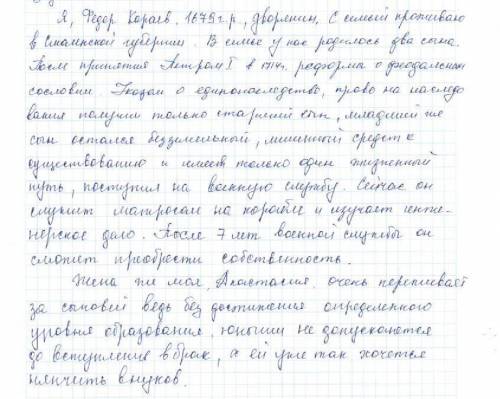 Я, Федор Караев. 1679 г.р., дворянин. С семьей проживаю
в Смоленской губернии. В семье у нас родилось два сына.
После принятия Петром I в 1714г. реформы о феодальном
сословии. Указом о единонаследстве, право на наследо
вания получил только старший сын, младший же
сын остался безземельный, лишенный средств к
существованию и имеет только один жизненный
путь, поступил на военную службу. Сейчас он
служит матросом на корабле и изучает инже-
нерское дело. После 7 лет военной службы он
сможет преобрести собственность.
Жена же моя, Анастасия, очень переживает
за сыновей ведь без достижения определенного
уровня образования, юноши не допускаются
до вступление в брак, а ей уже так хочется
нянчить внуков.